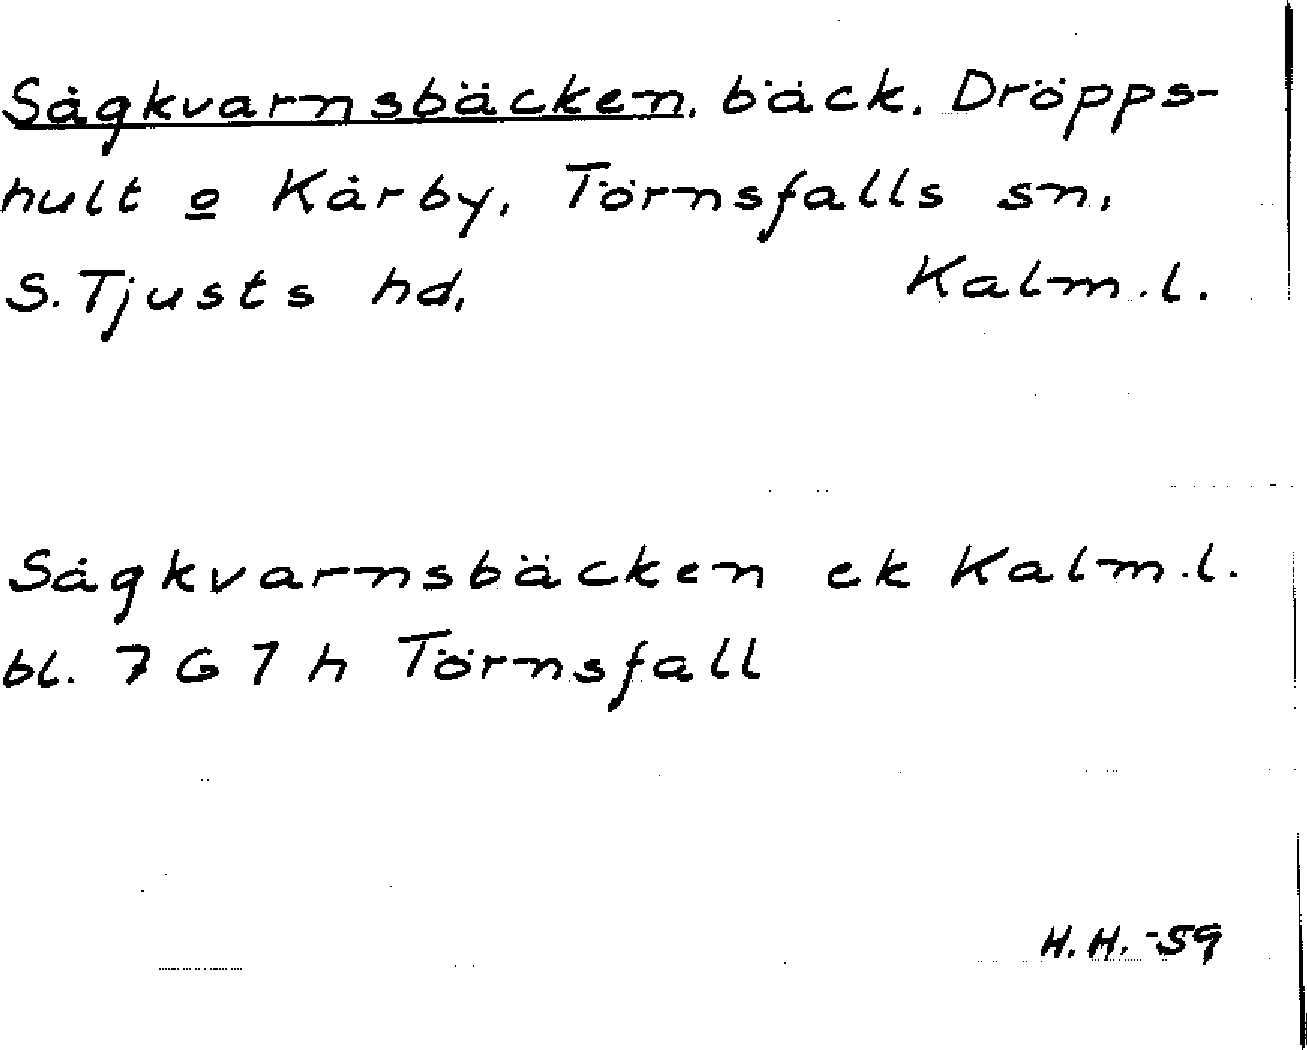 Sågkvarnsbäcken, bäck. Dröpps-
hult o Kårby, Törnsfalls sn,
S. Tjusts hd, Kalm.l.
Sågkvarnsbäcken ek Kalm.l.
bl. 7 G 7 h Törnsfall
H.H. -59